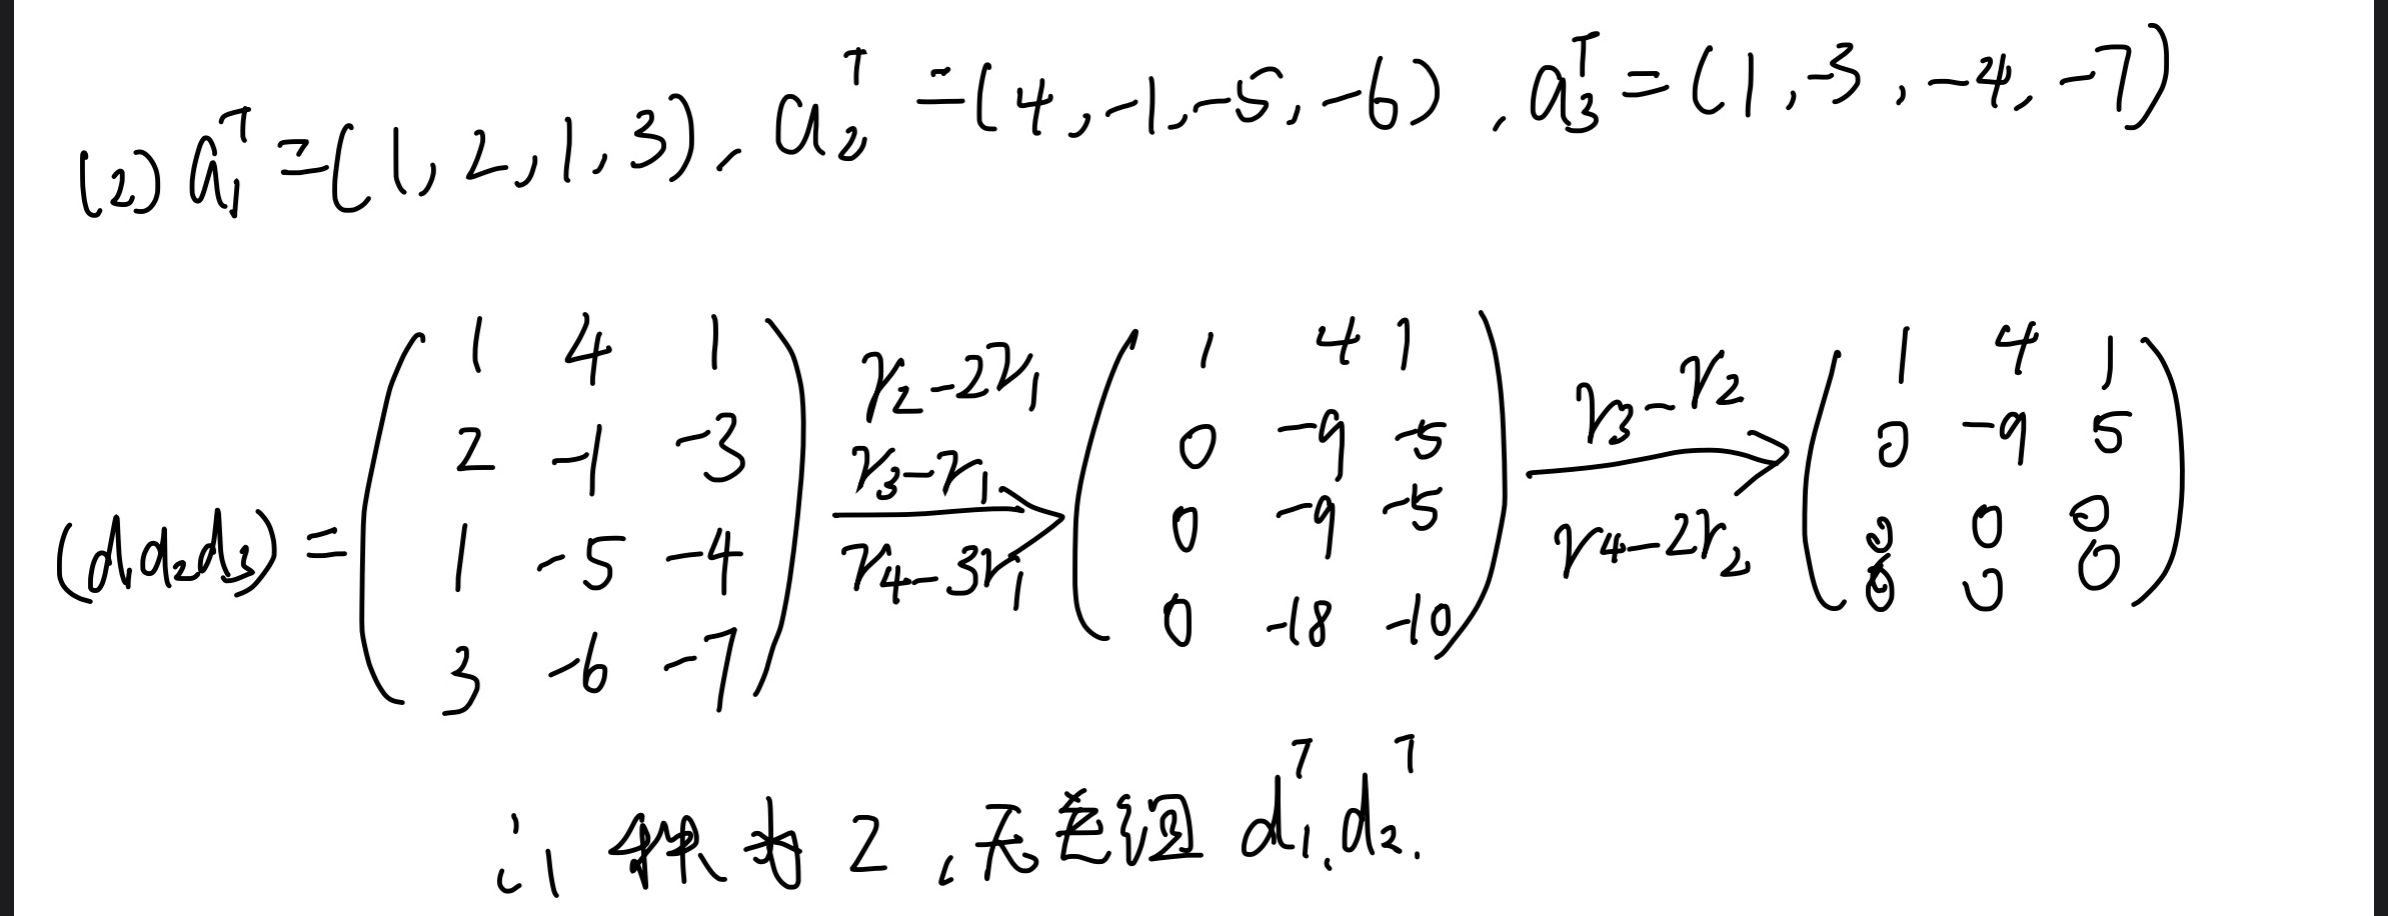 (2) a₁ᵀ=(1,2,1,3), a₂ᵀ=(4,-1,-5,-6), a₃ᵀ=(1,-3,-4,-7)
(α₁α₂α₃) = (1 4 1; 2 -1 -3; 1 -5 -4; 3 -6 -7) r₂-2r₁ r₃-r₁ r₄-3r₁ → (1 4 1; 0 -9 -5; 0 -9 -5; 0 -18 -10) r₃-r₂ r₄-2r₂ → (1 4 1; 0 -9 5; 0 0 0; 0 0 0)
∴ 秩为2,无关组 α₁ᵀ,α₂ᵀ.